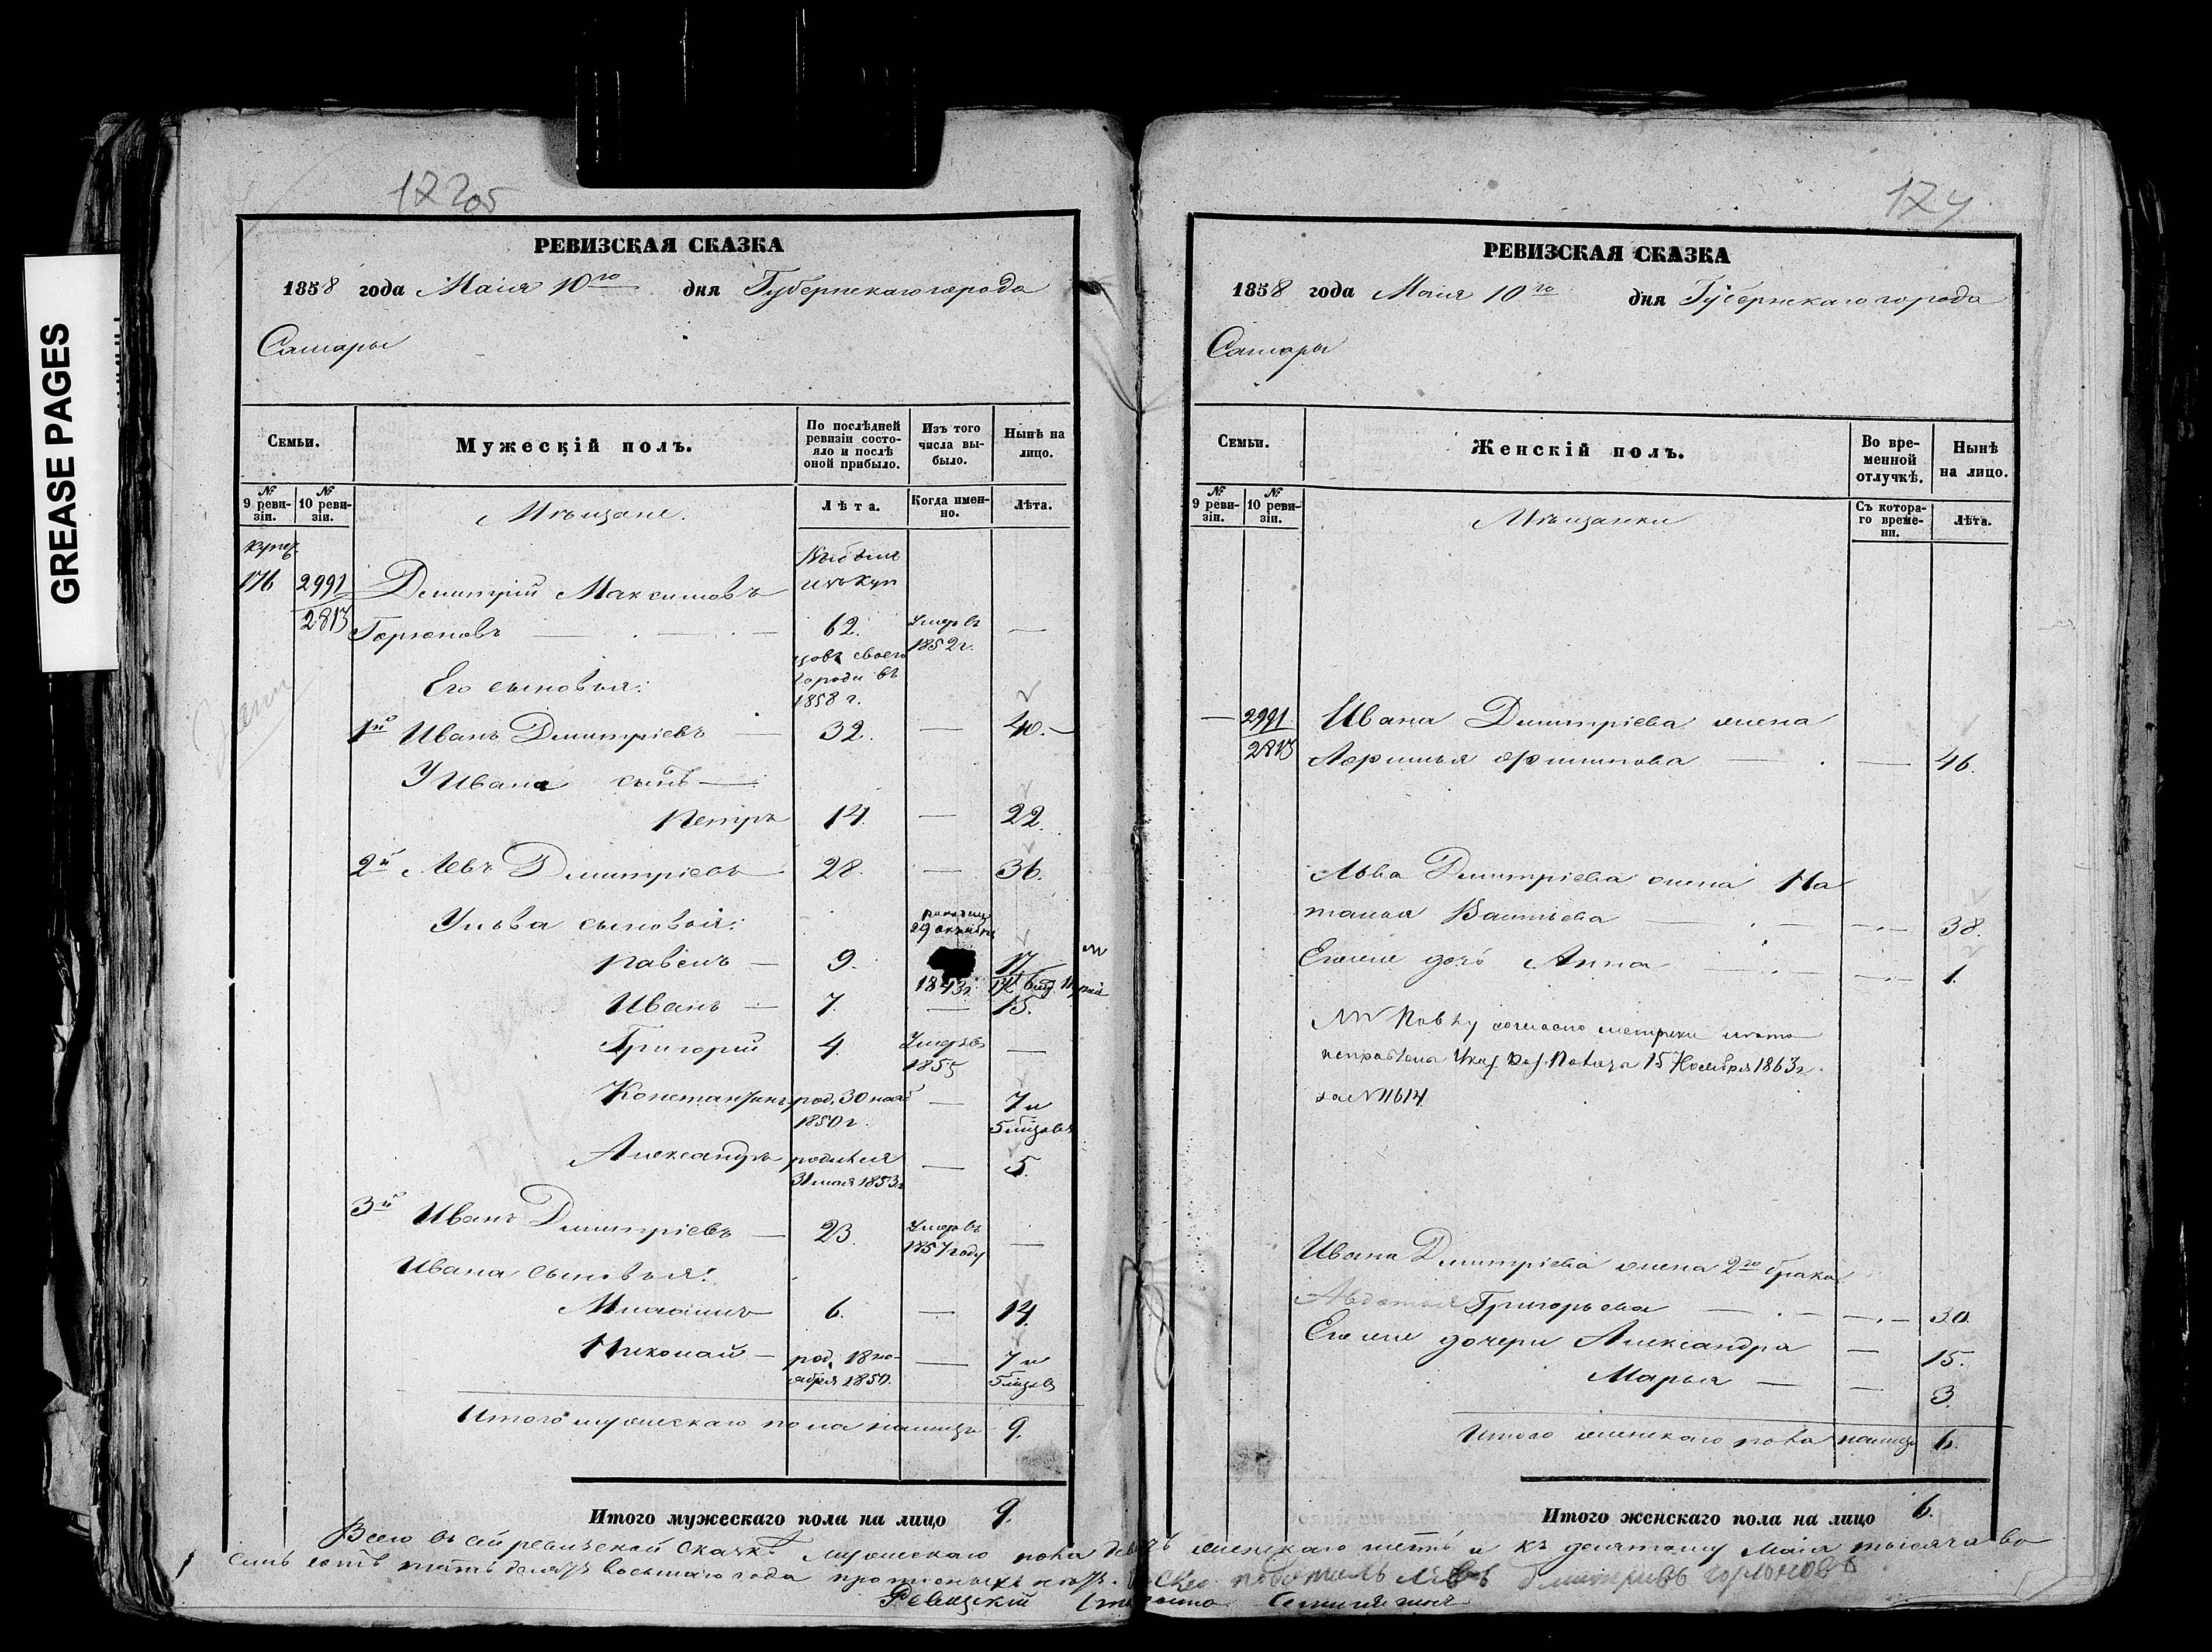 GREASE PAGES
172об
РЕВИЗСКАЯ СКАЗКА
1858 года Маія 10го дня Губернскаго города
Самары
Семьи.
Мужескій полъ.
По послѣдней ревизіи состо-
яло и послѣ оной прибыло.
Изъ того числа вы-
было.
Нынѣ на лицо.
№ 9 реви-
зіи.
№ 10 реви-
зіи.
Мѣщане.
Лѣта.
Когда имен-
но.
Лѣта.
купец
176 2991 Димитрій Максимовъ
2813 Горюновъ 62. Умеръ въ 1852 г. —
изъ куп
цовъ своего
города въ
1858 г.
Его сыновья:
1й Иванъ Димитріевъ — 32. — 40.
У Ивана сынъ
Петръ 14. — 22.
2й Левъ Димитріевъ 28. — 36.
У Льва сыновья:
29
Павелъ — 9. 1843 г. 17
Иванъ — 7. — 15.
Григорій 4. Умеръ въ 1855 —
Константинъ род. 30 нояб 1850 г. — 7 и 5 мѣсяцевъ
Александръ родился 31 мая 1853 г. — 5.
3й Иванъ Димитріевъ — 23. Умеръ въ 1857 году —
Ивана сыновья:
6. — 14.
Николай — род. 18 но-
ября 1850. — 7 и 5 мѣсяц
Итого мужескаго пола налицо 9.
Итого мужескаго пола на лицо 9.
174
РЕВИЗСКАЯ СКАЗКА
1858 года Маія 10го дня Губернскаго города
Самары
Семьи.
Женскій полъ.
Во вре-
менной отлучкѣ.
Нынѣ на лицо.
№ 9 реви-
зіи.
№ 10 реви-
зіи.
Мѣщанки
Съ котора-
го време-
ни.
Лѣта.
— 2991 Ивана Димитріева жена
2813 — 46.
Льва Димитріева жена На
талья — 38.
Ея же дочь Анна — 1.
Павлу согласно метрики лѣта
исправлены Указ. Каз. Палаты 15 Ноября 1863 г.
за № 11614
Ивана Димитріева жена 2го брака
Авдотья Григорьева — 30.
Ея же дочери Александра — 15.
Марья — 3.
Итого женскаго пола налицо 6.
Итого женскаго пола на лицо 6.
Всего въ сей ревизской сказкѣ мужескаго пола девять женскаго шесть и къ десятому Маія тысяча во
семь сотъ пятьдесятъ восьмаго года прописныхъ нѣтъ. Левъ Дмитриевъ Горюновъ
Ревизскій